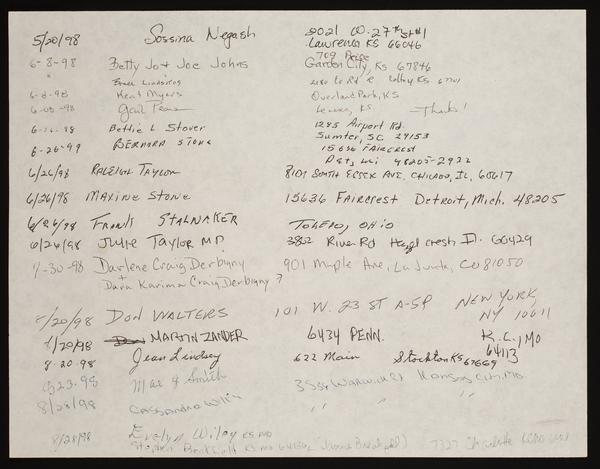 5/20/98 Sossina Negash 2021 W. 27th St #1
Lawrence KS 66046
6-8-98 Betty Jo & Joe Johns 709 Garden City, Ks 67846
" Colby KS 67701
6-8-98 Kent Myers Overland Park, KS
6-08-98 Gail Lenexa, KS. Thanks!
6-26-98 Bettie L Stover 1285 Airport Rd.
Sumter, SC 29153
6-26-98 Bernard Stone 15636 Faircrest
Det, Mi 48205-2922
6/26/98 Raleigh Taylor 8101 South Essex Ave. Chicago, IL. 60617
6/26/98 Maxine Stone 15636 Faircrest Detroit, Mich. 48205
6/26/98 Frank Stalnaker Toledo, Ohio
6/26/98 Julie Taylor MD River Rd Hazel crest Il. 60429
7-30-98 Darlene Craig Derbigny 901 Maple Ave, La Junta, CO 81050
+
Dara Karima Craig Derbigny
8/20/98 Don Walters 101 W. 23 St A-5P New York,
NY 10011
8/20/98 Don Martin Zander 6434 Penn. K.C., Mo
64113
8-20-98 Jean Lindsey 622 Main Stockton KS 67669
8-23-98 Smith Warwick St Kansas City, Mo.
8/28/98 Cassandra Wiley " "
8/28/98 Evelyn Wiley KS MO
Stephen 7327 Charlotte